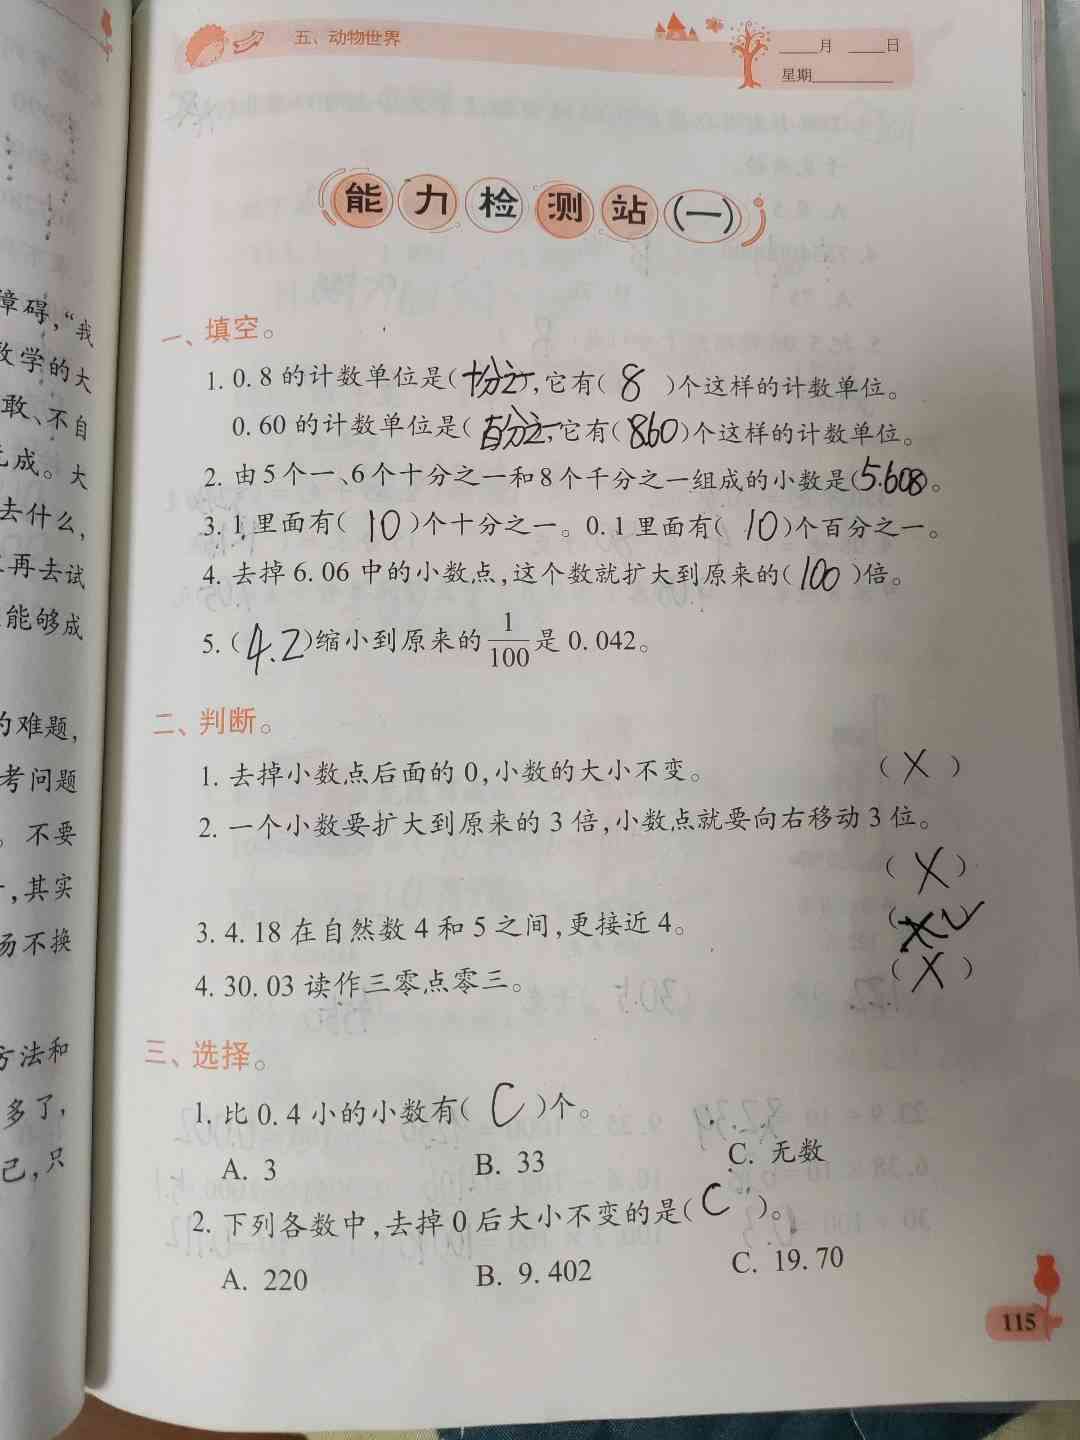 五、动物世界
____月 ____日
星期________
能力检测站(一)
障碍,“我
数学的大
敢、不自
完成。大
去什么,
再去试
能够成
的难题,
考问题
。不要
,其实
汤不换
方法和
多了,
己,只
一、填空。
1. 0.8的计数单位是(十分之一),它有( 8 )个这样的计数单位。
0.60的计数单位是(百分之一),它有(860)个这样的计数单位。
2. 由5个一、6个十分之一和8个千分之一组成的小数是(5.608)。
3. 1里面有( 10 )个十分之一。0.1里面有( 10 )个百分之一。
4. 去掉6.06中的小数点,这个数就扩大到原来的( 100 )倍。
5. ( 4.2 )缩小到原来的1/100是0.042。
二、判断。
1. 去掉小数点后面的0,小数的大小不变。 ( X )
2. 一个小数要扩大到原来的3倍,小数点就要向右移动3位。
( X )
3. 4.18在自然数4和5之间,更接近4。 ( ✓ )
4. 30.03读作三零点零三。 ( X )
三、选择。
1. 比0.4小的小数有( C )个。
A. 3 B. 33 C. 无数
2. 下列各数中,去掉0后大小不变的是( C )。
A. 220 B. 9.402 C. 19.70
115